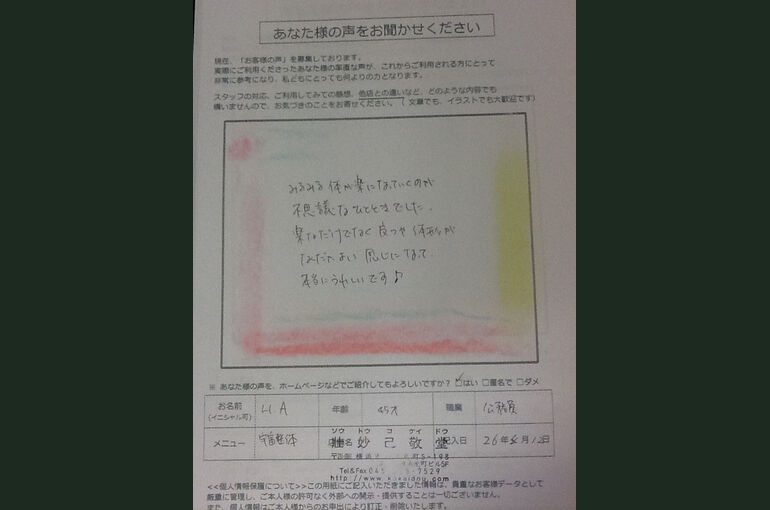 あなた様の声をお聞かせください
現在、「お客様の声」を募集しております。
実際にご利用くださったあなた様の率直な声が、これからご利用される方にとって
非常に参考になり、私どもにとっても何よりの力となります。
スタッフの対応、ご利用してみての感想、他店との違いなど、どのような内容でも
構いませんので、お気づきのことをお寄せください。(文章でも、イラストでも大歓迎です)
みるみる体が楽になっていくのが
不思議なひとときでした。
楽なだけでなく皮フや体形が
なだたよい感じになって
本当にうれしいです♪
※ あなた様の声を、ホームページなどでご紹介してもよろしいですか? ☑はい □匿名で □ダメ
お名前 (イニシャル可) U.A 年齢 45才 職業 公務員
メニュー 宇宙整体 店名 ソウ トウ コ ケイ ドウ 妙己敬堂 記入日 26年 月12日
5-198
町ビル5F
Tel&Fax045 -7529
<<個人情報保護について>>この用紙にご記入いただきました情報は、貴重なお客様データとして
厳重に管理し、ご本人様の許可なく外部への開示・提供することは一切ございません。
また、個人情報はご本人様からのお申出により訂正・削除いたします。